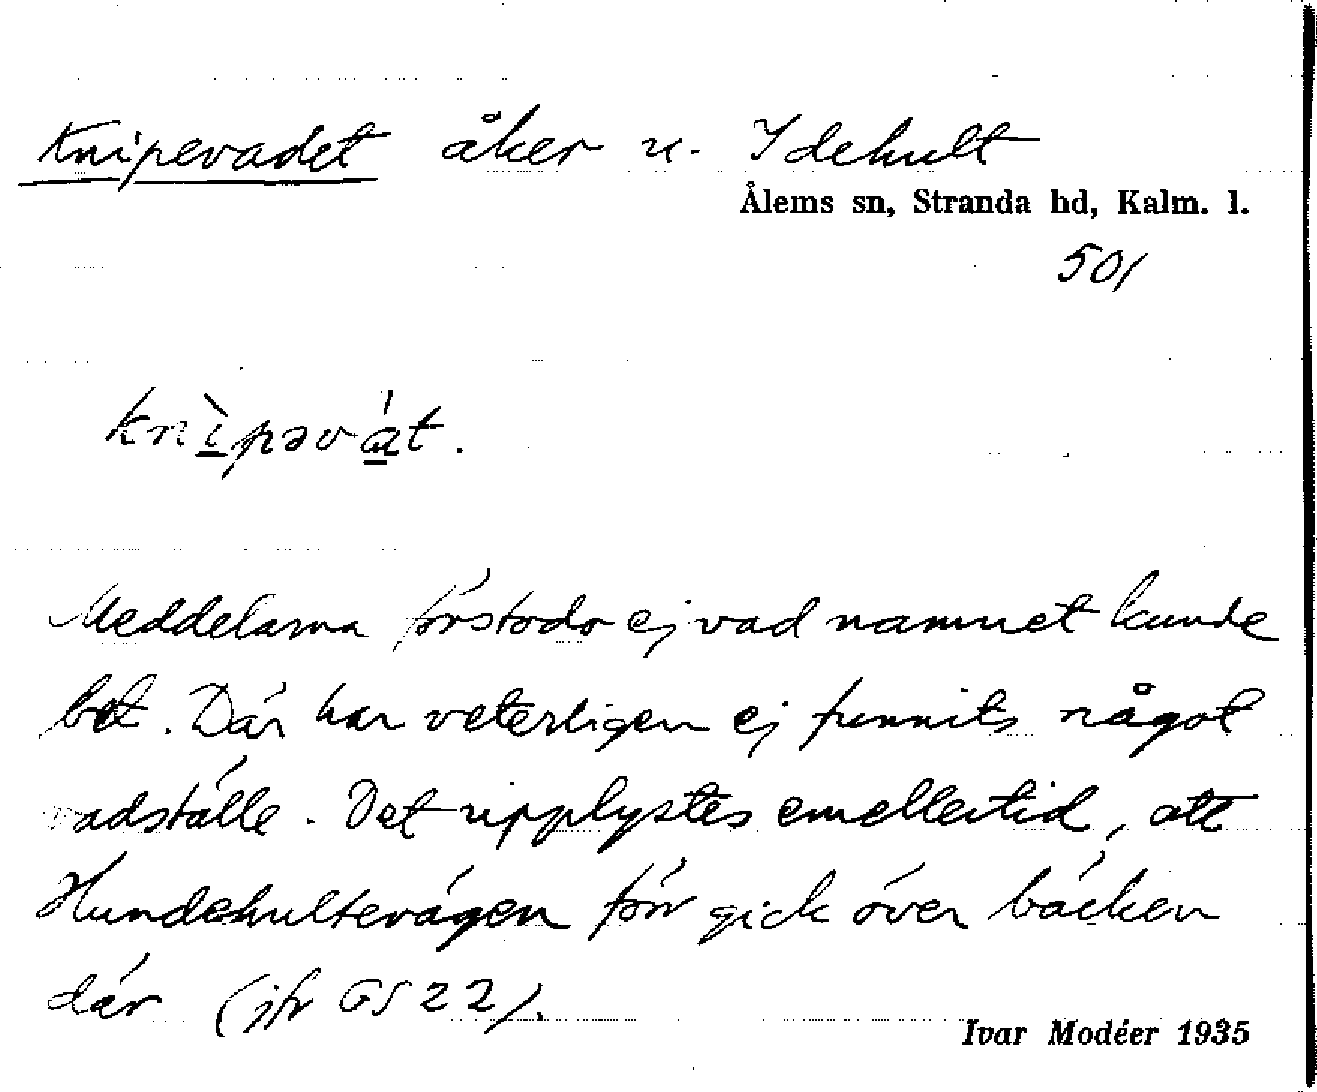 Knipevadet åker u. Idehult
Ålems sn, Stranda hd, Kalm. l.
501
knìpəvát.
Meddelarna förstodo ej vad namnet kunde
bet. Där har veterligen ej funnits något
vadställe. Det upplystes emellertid, att
Hundehultevägen förr gick över bäcken
där (jfr GS 22).
Ivar Modéer 1935